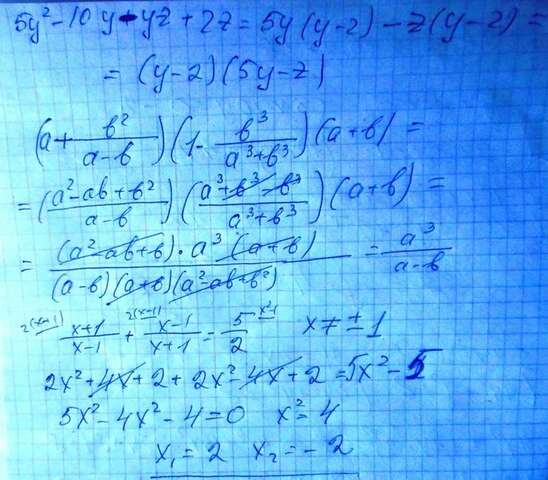 5y² - 10y - yz + 2z = 5y(y-2) - z(y-2) =
= (y-2)(5y-z)
(a + b²/(a-b))(1 - b³/(a³+b³))(a+b) =
= ((a²-ab+b²)/(a-b))((a³+b³-b³)/(a³+b³))(a+b) =
= ((a²-ab+b)·a³(a+b))/((a-b)(a+b)(a²-ab+b²)) = a³/(a-b)
2(x+1) (x+1)/(x-1) + 2(x-1) (x-1)/(x+1) = 5/2 x²-1 x ≠ ±1
2x² + 4x + 2 + 2x² - 4x + 2 = 5x² - 5
5x² - 4x² - 4 = 0 x² = 4
x₁ = 2 x₂ = -2